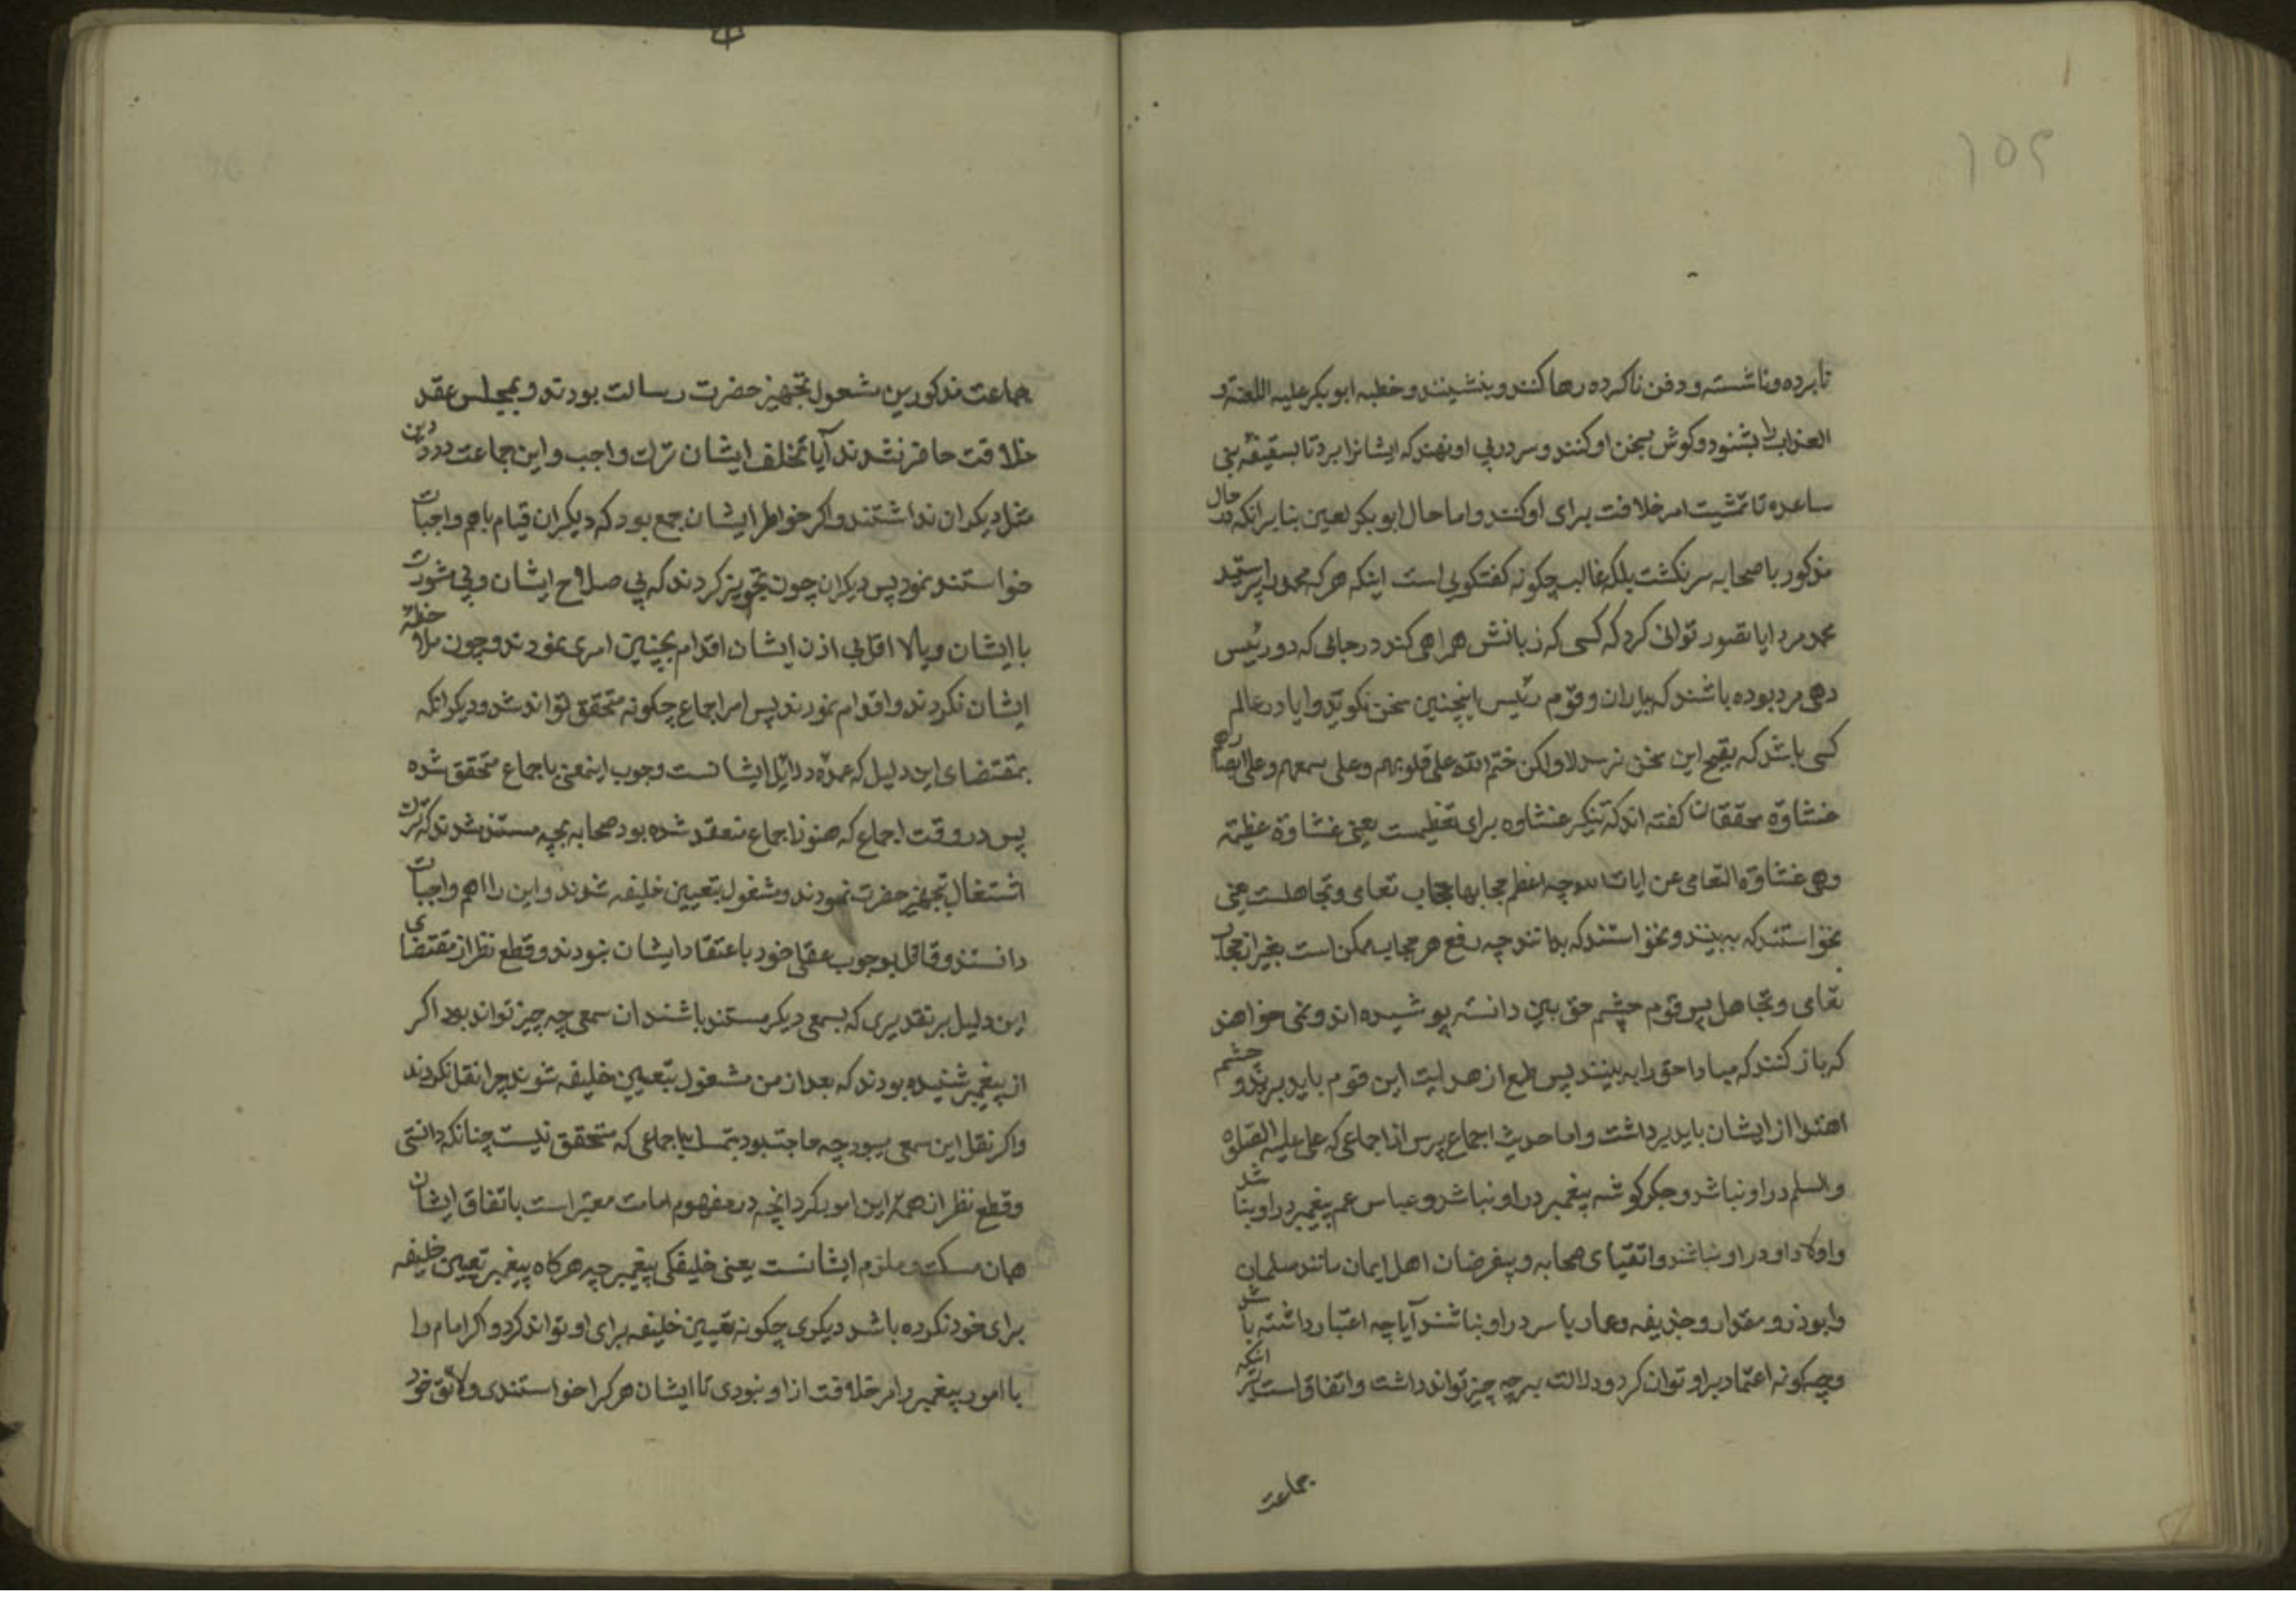 ۱۵۴
نابرده و ناشسته و دفن ناکرده رها کنند و بنشینند و خطبه ابو بکر علیه اللعنة و
العذاب را بشنود و کوش بسخن او کنند و سر در پی او نهند که ایشانرا برد تا بسقیفه بنی
ساعده تا تمشیت امر خلافت برای او کنند و اما حال ابو بکر لعین بنا بر انکه در حال
مذکور با صحابه سر نکشت بلکه غالب چکونه کفتکویی است اینکه هر که محمد را پرستید
محمد مرد ایا تصور توانی کرد که کسی که زبانش همراهی کند در جایی که دو رئیس
دهی مرد بوده باشند که بیاران و قوم رئیس اینچنین سخن نکوید و ایا در عالم
کسی باشد که بقبح این سخن نرسد لا ولکن ختم الله علی قلوبهم و علی سمعهم و علی ابصارهم
غشاوة محققان کفته اند که تنکیر غشاوه برای تعظیمست یعنی غشاوة عظیمة
وهی غشاوة التعامی عن ایات الله چه اعظم حجابها حجاب تعامی و تجاهلست یعنی
نخواستند که به بینند و نخواستند که بدانند چه رفع هر حجاب ممکن است بغیر از حجاب
تعامی و تجاهل پس قوم چشم حق بین دانسته پوشیده اند و نمی خواهند
که باز کنند که مبادا حق را به بینند پس طمع از هدایت این قوم باید برید و چشم
اهتدا از ایشان باید برداشت و اما حدیث اجماع پرس از اجماعی که علی علیه الصلوة
والسلم در او نباشد و جکر کوشه پیغمبر در او نباشد و عباس عم پیغمبر در او نباشد
و اولاد او در او نباشند و اتقیای صحابه و بیغرضان اهل ایمان مانند سلمان
و ابوذر و مقداد و حذیفه و عمار یاسر در او نباشند آیا چه اعتبار داشته باشد
و چکونه اعتماد بر او توان کرد و دلالت بر چه چیز تواند داشت و اتفاق است بر انکه
جماعت
جماعت مذکورین مشغول تجهیز حضرت رسالت بودند و بمجلس عقد
خلافت حاضر نشدند آیا تخلف ایشان ترک واجب و این جماعت درد دین
مثل دیکران نداشتند و اکر خواطر ایشان جمع بود که دیکران قیام باهم واجبات
خواستند نمود پس دیکران چون تجویز کردند که بی صلاح ایشان و بی مشورت
با ایشان و یا لا اقل بی اذن ایشان اقدام بچنین امری نمودند و چون ملاحظه
ایشان نکردند و اقدام نمودند پس امر اجماع چکونه متحقق تواند شد و دیکر انکه
بمقتضای این دلیل که عمده دلایل ایشانست وجوب اینمعنی باجماع متحقق شده
پس در وقت اجماع که هنوز اجماع منعقد نشده بود صحابه بچه مستند شدند که ترک
اشتغال تجهیز حضرت نمودند و مشغول بتعیین خلیفه شوند و این را اهم واجبات
دانستند و قائل بوجوب عقلی خود باعتقاد ایشان نبودند و قطع نظر از مقتضای
این دلیل بر تقدیری که بسمعی دیکر مستند باشند ان سمعی چه چیز تواند بود اکر
از پیغمبر شنیده بودند که بعد از من مشغول بتعیین خلیفه شوند چرا نقل نکردند
و اکر نقل این سمعی میبود چه حاجت بود بتمسک باجماعی که متحقق نیست چنانکه دانستی
و قطع نظر از همه این امور کرد انچه در مفهوم امامت معتبر است باتفاق ایشان
همان مسکت و ملزم ایشانست یعنی خلیفکی پیغمبر چه هر کاه پیغمبر تعیین خلیفه
برای خود نکرده باشد دیکری چکونه تعیین خلیفه برای او تواند کرد و اکر امام را
با امور پیغمبر و امر خلافت از او نبودی تا ایشان هر کرا خواستندی و لائق خود